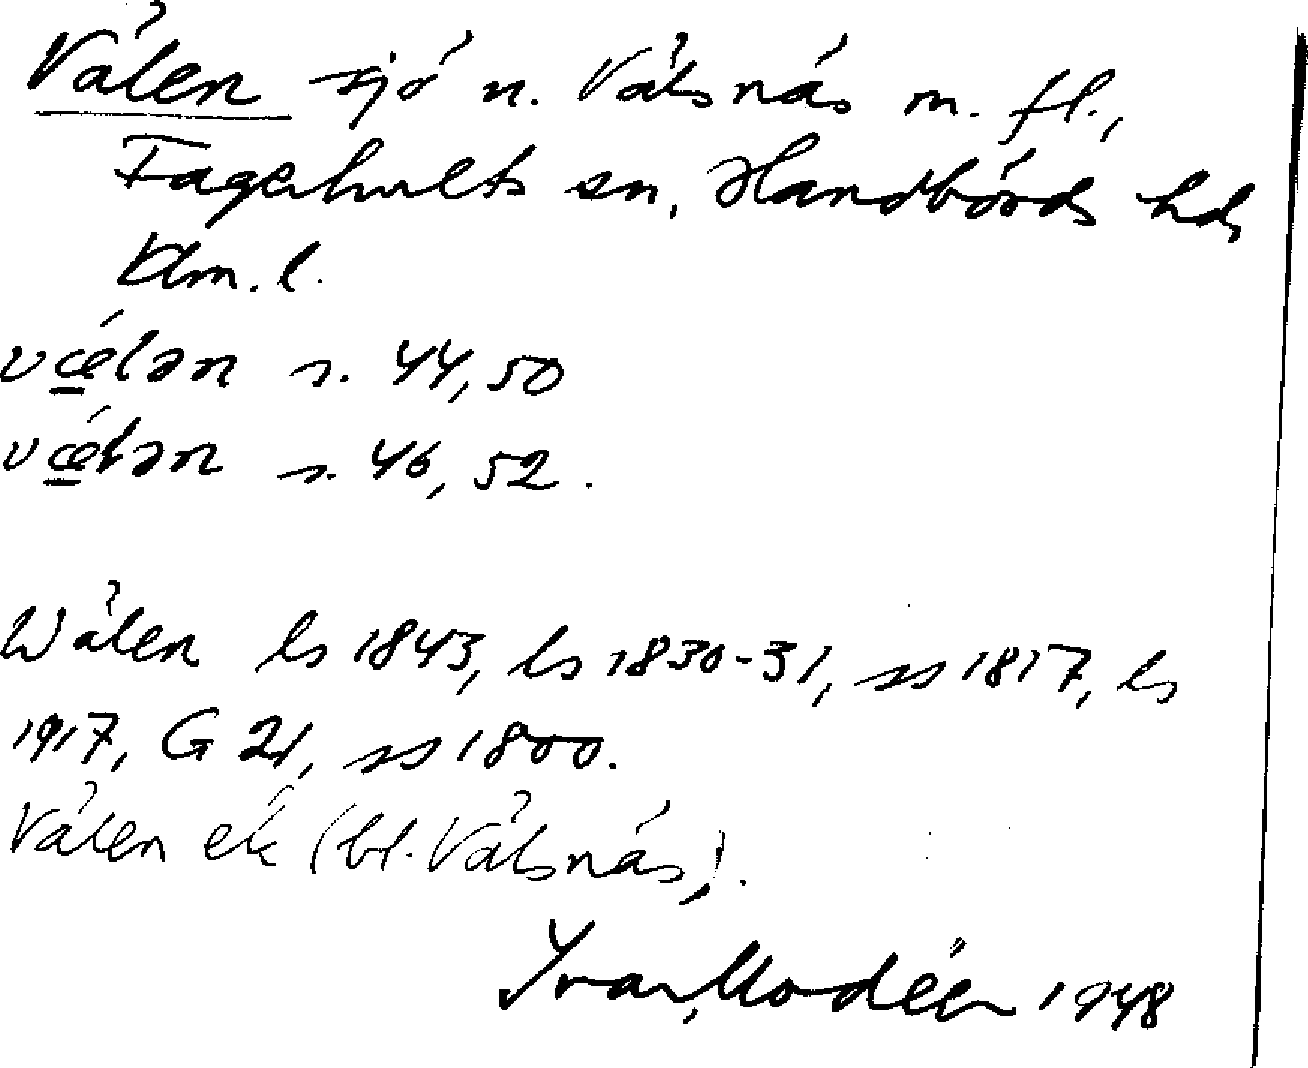 Välen sjö n. Välsnäs m. fl.,
Fagerhults sn, Handbörds hd,
Klm. l.
vǽ̲lən s. 44, 50
vǽ̲lən s. 46, 52.
Wålen ls 1843, ls 1830-31, ss 1817, ls
1917, G 21, ss 1800.
Vålen ek (bl. Vålsnäs).
Ivar Modéer 1948